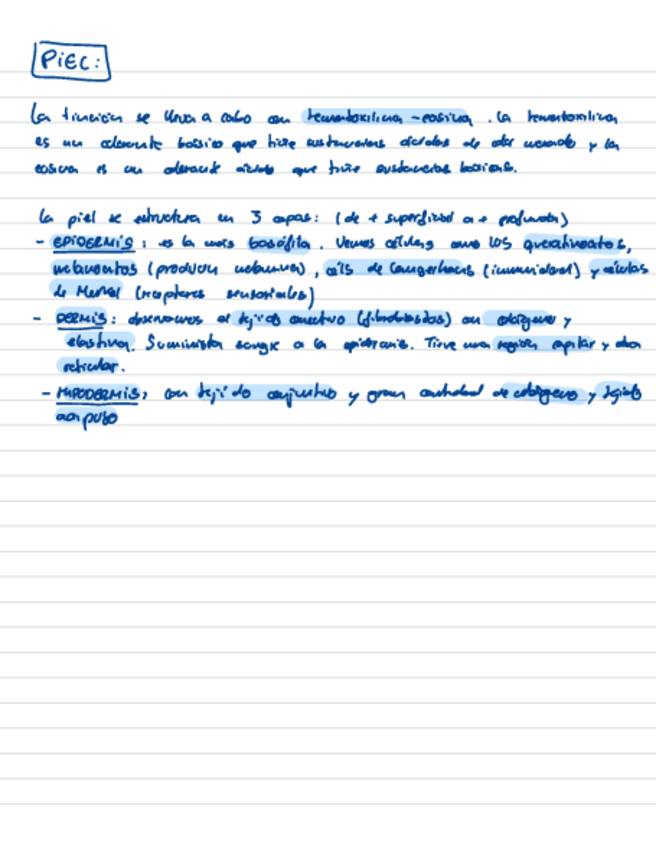 PIEL:
La tinción se lleva a cabo con hematoxilina - eosina. La hematoxilina
es un colorante básico que tiñe sustancias ácidas de color morado y la
eosina es un colorante ácido que tiñe sustancias básicas.
La piel se estructura en 3 capas: (de + superficial a + profunda)
- EPIDERMIS: es la más basófila. Vemos células como los queratinocitos,
melanocitos (producen melanina), céls de Langerhans (inmunidad) y células
de Merkel (receptores sensoriales)
- DERMIS: observamos el tejido conectivo (fibroblastos) con colágeno y
elastina. Suministra sangre a la epidermis. Tiene una región papilar y otra
reticular.
- HIPODERMIS, con tejido conjuntivo y gran cantidad de colágeno y tejido
adiposo